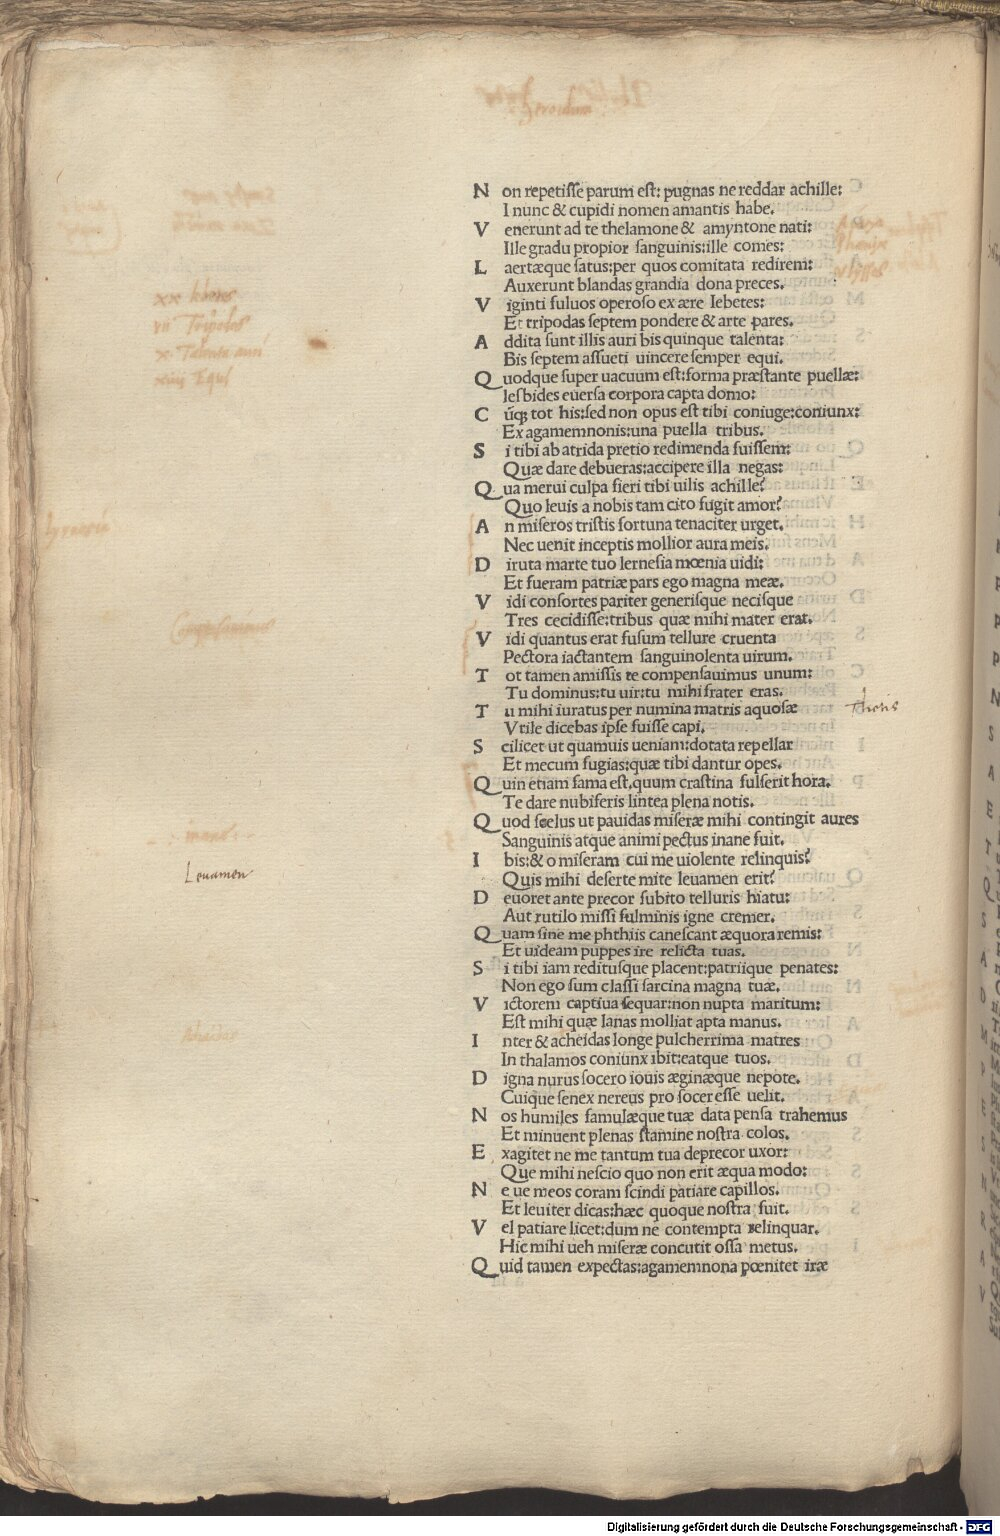 Heroidum
N on repetisse parum est: pugnas ne reddar achille:
I nunc & cupidi nomen amantis habe.
V enerunt ad te thelamone & amyntone nati:
Ille gradu propior sanguinis:ille comes:
L aertæque satus:per quos comitata redirem:
Auxerunt blandas grandia dona preces.
V iginti fuluos operoso ex ære lebetes:
Et tripodas septem pondere & arte pares.
A ddita sunt illis auri bis quinque talenta:
Bis septem assueti uincere semper equi.
Q uodque super uacuum est:forma præstante puellæ:
lesbides euersa corpora capta domo:
C ūq; tot his:sed non opus est tibi coniuge:coniunx:
Ex agamemnonis:una puella tribus.
S i tibi ab atrida pretio redimenda fuissem:
Quæ dare debueras:accipere illa negas:
Q ua merui culpa fieri tibi uilis achille?
Quo leuis a nobis tam cito fugit amor?
A n miseros tristis fortuna tenaciter urget.
Nec uenit inceptis mollior aura meis.
D iruta marte tuo lernesia mœnia uidi:
Et fueram patriæ pars ego magna meæ.
V idi consortes pariter generisque necisque
Tres cecidisse:tribus quæ mihi mater erat.
V idi quantus erat fusum tellure cruenta
Pectora iactantem sanguinolenta uirum.
T ot tamen amissis te compensauimus unum:
Tu dominus:tu uir:tu mihi frater eras.
T u mihi iuratus per numina matris aquosæ
Vtile dicebas ipse fuisse capi.
S cilicet ut quamuis ueniam:dotata repellar
Et mecum fugias:quæ tibi dantur opes.
Q uin etiam fama est.quum crastina fulserit hora.
Te dare nubiferis lintea plena notis.
Q uod scelus ut pauidas miseræ mihi contingit aures
Sanguinis atque animi pectus inane fuit.
I bis:& o miseram cui me uiolente relinquis?
Quis mihi deserte mite leuamen erit?
D euoret ante precor subito telluris hiatu:
Aut rutilo missi fulminis igne cremer.
Q uam sine me phthiis canescant æquora remis:
Et uideam puppes ire relicta tuas.
S i tibi iam reditusque placent:patriique penates:
Non ego sum classi sarcina magna tuæ.
V ictorem captiua sequar:non nupta maritum:
Est mihi quæ lanas molliat apta manus.
I nter & acheidas longe pulcherrima matres
In thalamos coniunx ibit:eatque tuos.
D igna nurus socero iouis æginæque nepote.
Cuique senex nereus pro socer esse uelit.
N os humiles famulæque tuæ data pensa trahemus
Et minuent plenas stamine nostra colos.
E xagitet ne me tantum tua deprecor uxor:
Que mihi nescio quo non erit æqua modo:
N e ue meos coram scindi patiare capillos.
Et leuiter dicas:hæc quoque nostra fuit.
V el patiare licet:dum ne contempta relinquar.
Hic mihi ueh miseræ concutit ossa metus.
Q uid tamen expectas:agamemnona pœnitet iræ
Vlisses
xx lebetes
vii Tripodes
x Talenta auri
xiiii Equi
Compensamus
Thetis
inane
Leuamen
Achaidas
Digitalisierung gefördert durch die Deutsche Forschungsgemeinschaft - DFG